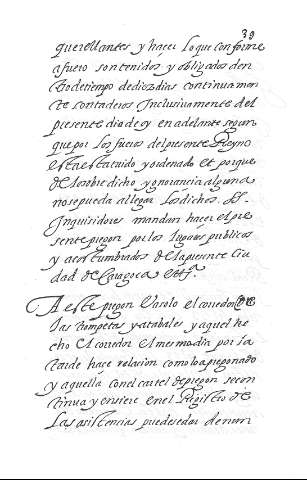 39
querellantes y hacer lo que conforme
a fuero son tenidos y obligados den
tro de tiempo de diez dias continuamen
te contaderos inclusivamente del
presente dia de oy en adelante segun
que por los fueros del presente Reyno
esta estatuido y ordenado et porque
de lo sobre dicho ygnorancia alguna
no se pueda allegar los dichos SS.
Inquisidores mandan hacer el pre
sente pregon por los lugares publicos
y acostumbrados de la presente Ciu
dad de Caragoca
A este pregon Vasolo el corredor de
las trompetas y atabales y aquel he
cho el corredor el mesmo dia por la
tarde hace relacion como lo a pregonado
y aquella con el cartel de pregon se con
tinua y ensiere en el Registro de
Las asistencias puede se dar